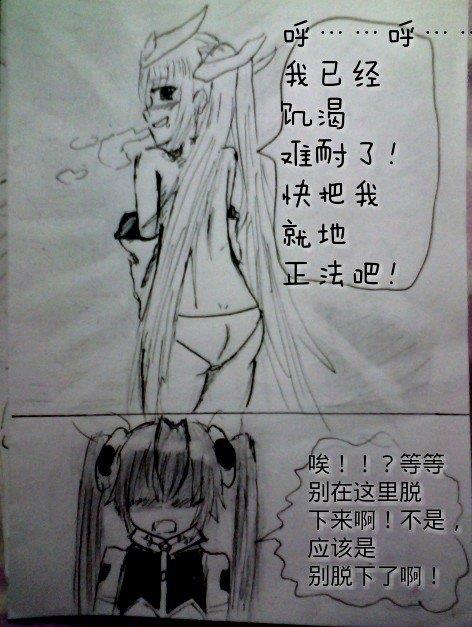 呼……呼……
我已经
饥渴
难耐了！
快把我
就地
正法吧！
唉！！？等等
别在这里脱
下来啊！不是，
应该是
别脱下了啊！